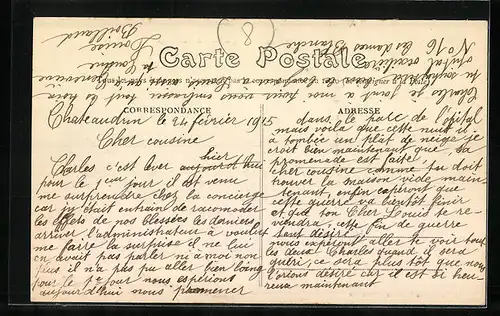 8
Carte Postale
CORRESPONDANCE
ADRESSE
Chateaudun le 24 février 1915
Cher cousine
Charles c'est lever aujourd'hui hier
pour le 1er jour il est venu
me surprendre chez la concierge
car j'était entrain de racmoder
les effets de nos blessées les demoiselles
arriver l'administrateur à voulut
me faire la surprise il ne lui
en avait pas parler ni a moi non
plus il n'a pas pu aller bien loing
pour le 1er jour nous espérions
aujourd'hui nous promener
dans le parc de l'opital
mais voila que cette nuit il
a tombée un plât de neige je
croit bien maintenant que sa
promenade est faite
cher cousine comme tu doit
trouver la maison vide main
tenant enfin espéront que
cette guerre va bientôt finir
et que ton Cher Louis te re-
viendra cette fin de guerre
tant désirée
nous espéront aller te voir tout
les deux Charles quand il sera
guéri ce sera plus tôt que nous
l'orions désiré car il est si heu
reux maintenant
Coralie je te
tout le monde
a moi pour vous embrasser
Louis
Geneviève
No 16
Blanche
Louise